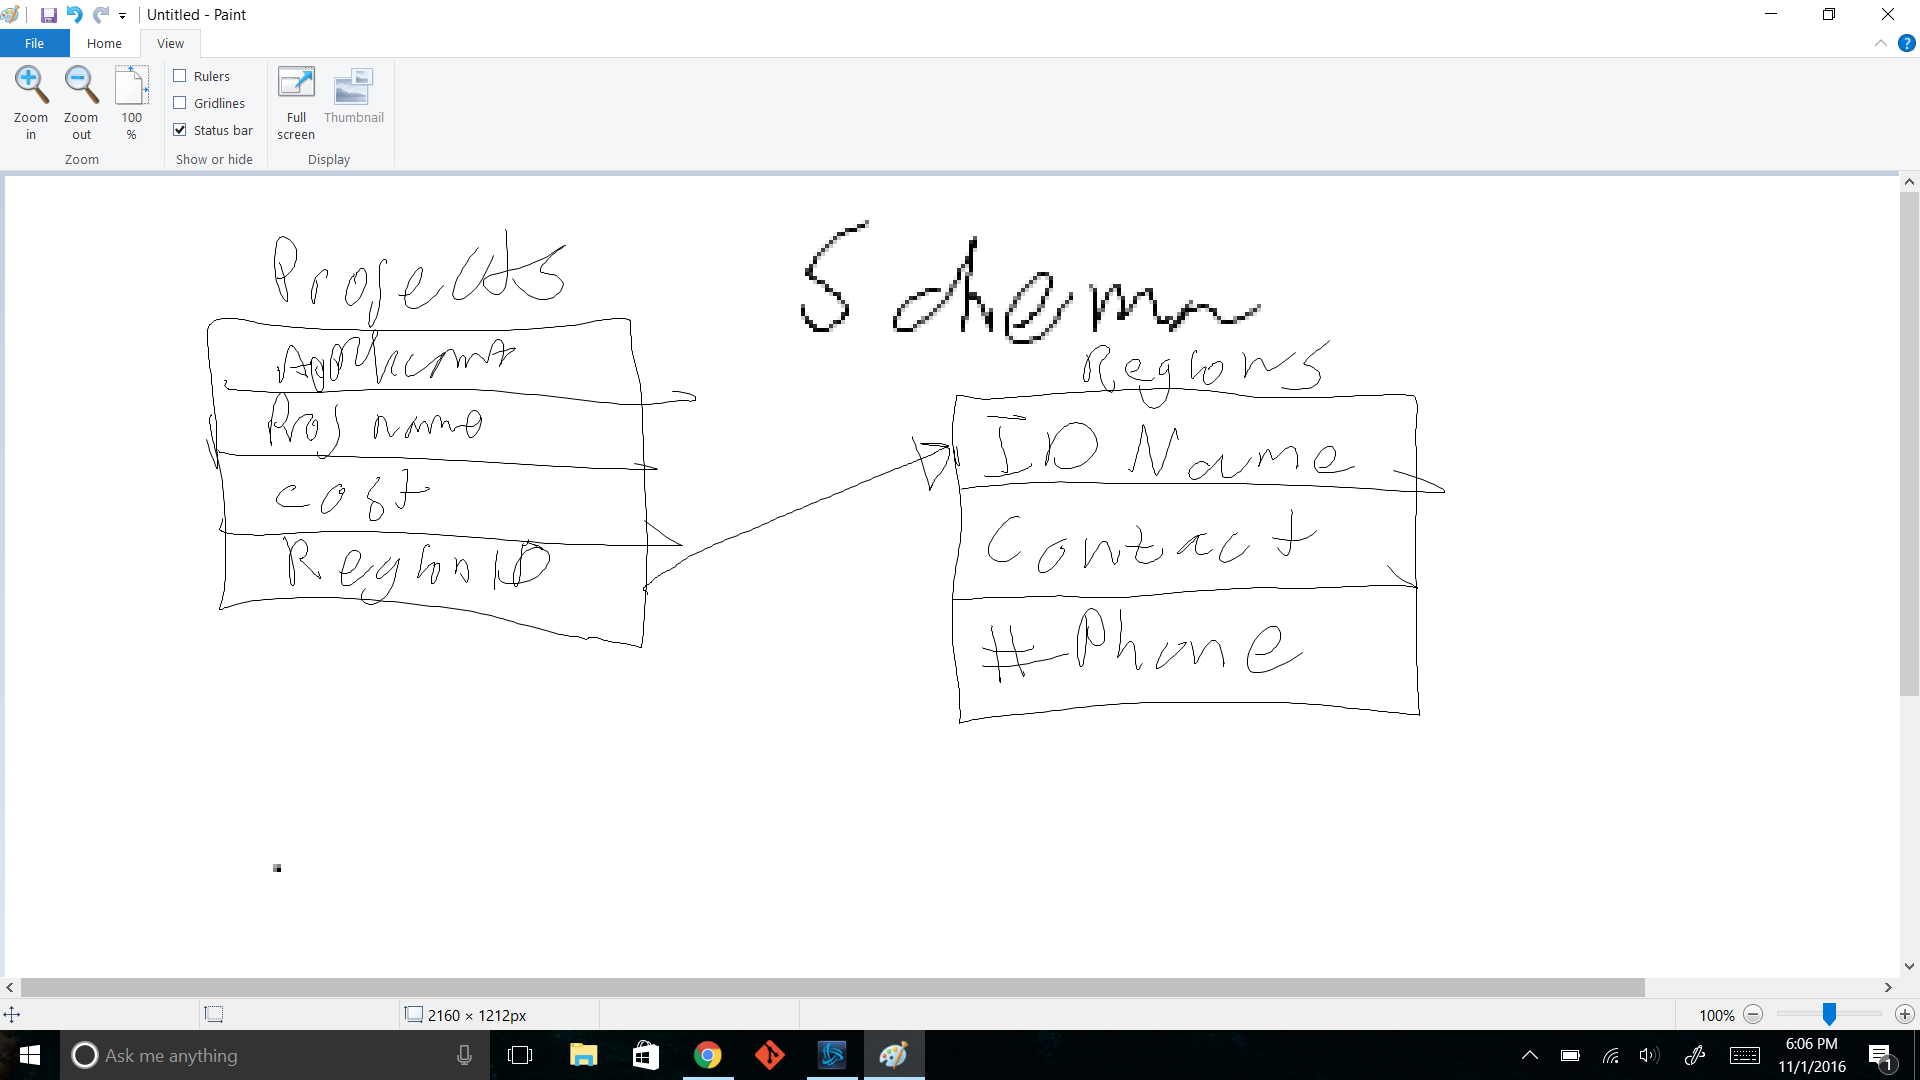 Untitled - Paint
File
Home
View
Zoom in
Zoom out
100 %
Rulers
Gridlines
Status bar
Full screen
Thumbnail
Zoom
Show or hide
Display
Schema
Projects
Applicant
Proj name
Cost
Region ID
Regions
ID Name
Contact
# Phone
2160 × 1212px
100%
Ask me anything
6:06 PM
11/1/2016
1